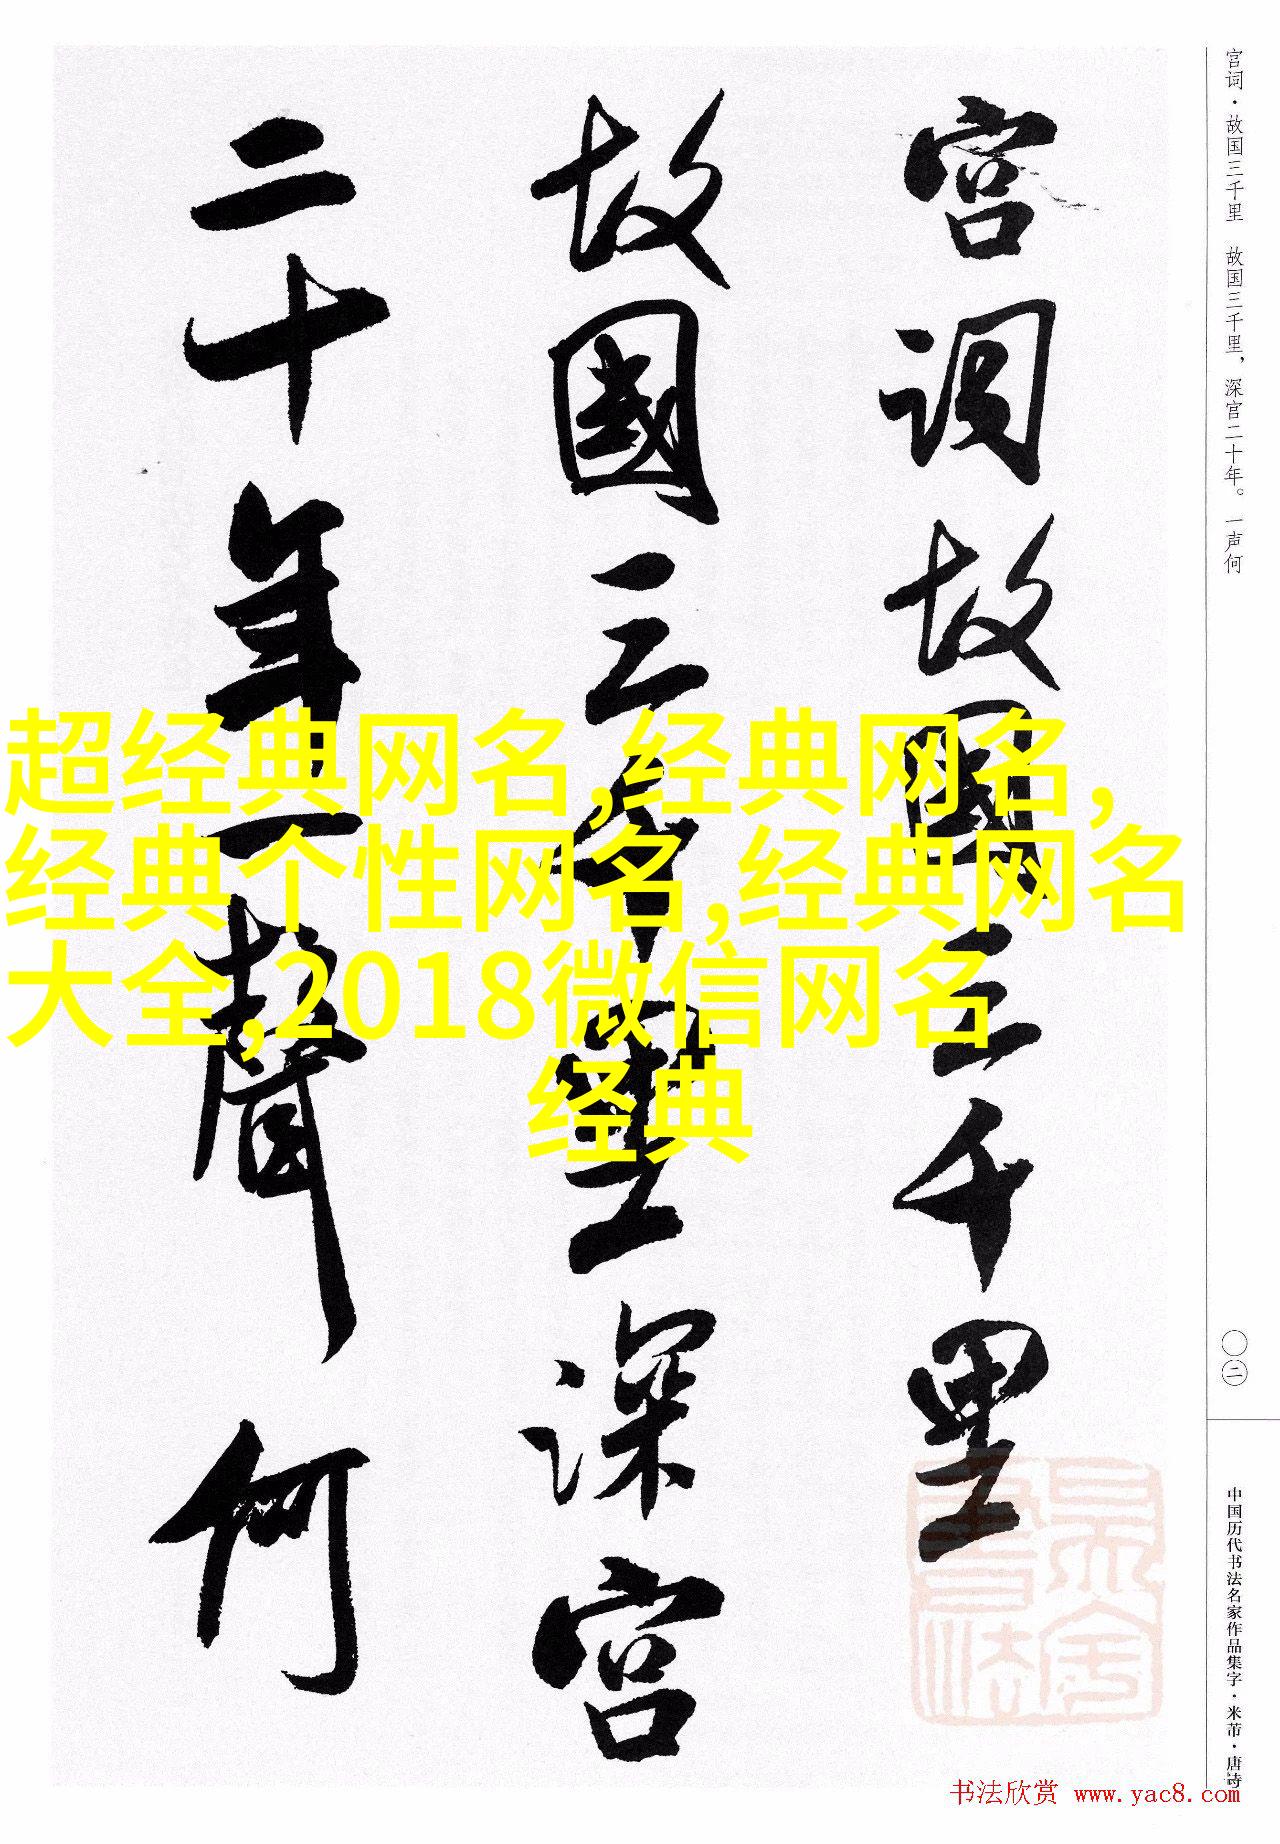 宫词故國三千里
故國三千里深宫
二十年一聲何
宫词·故国三千里 故国三千里，深宫二十年。一声何
〇二
中国历代书法名家作品集字·米芾·唐诗
超经典网名,经典网名,
经典个性网名,经典网名
大全,2018微信网名
经典
书法欣赏 www.yac8.com